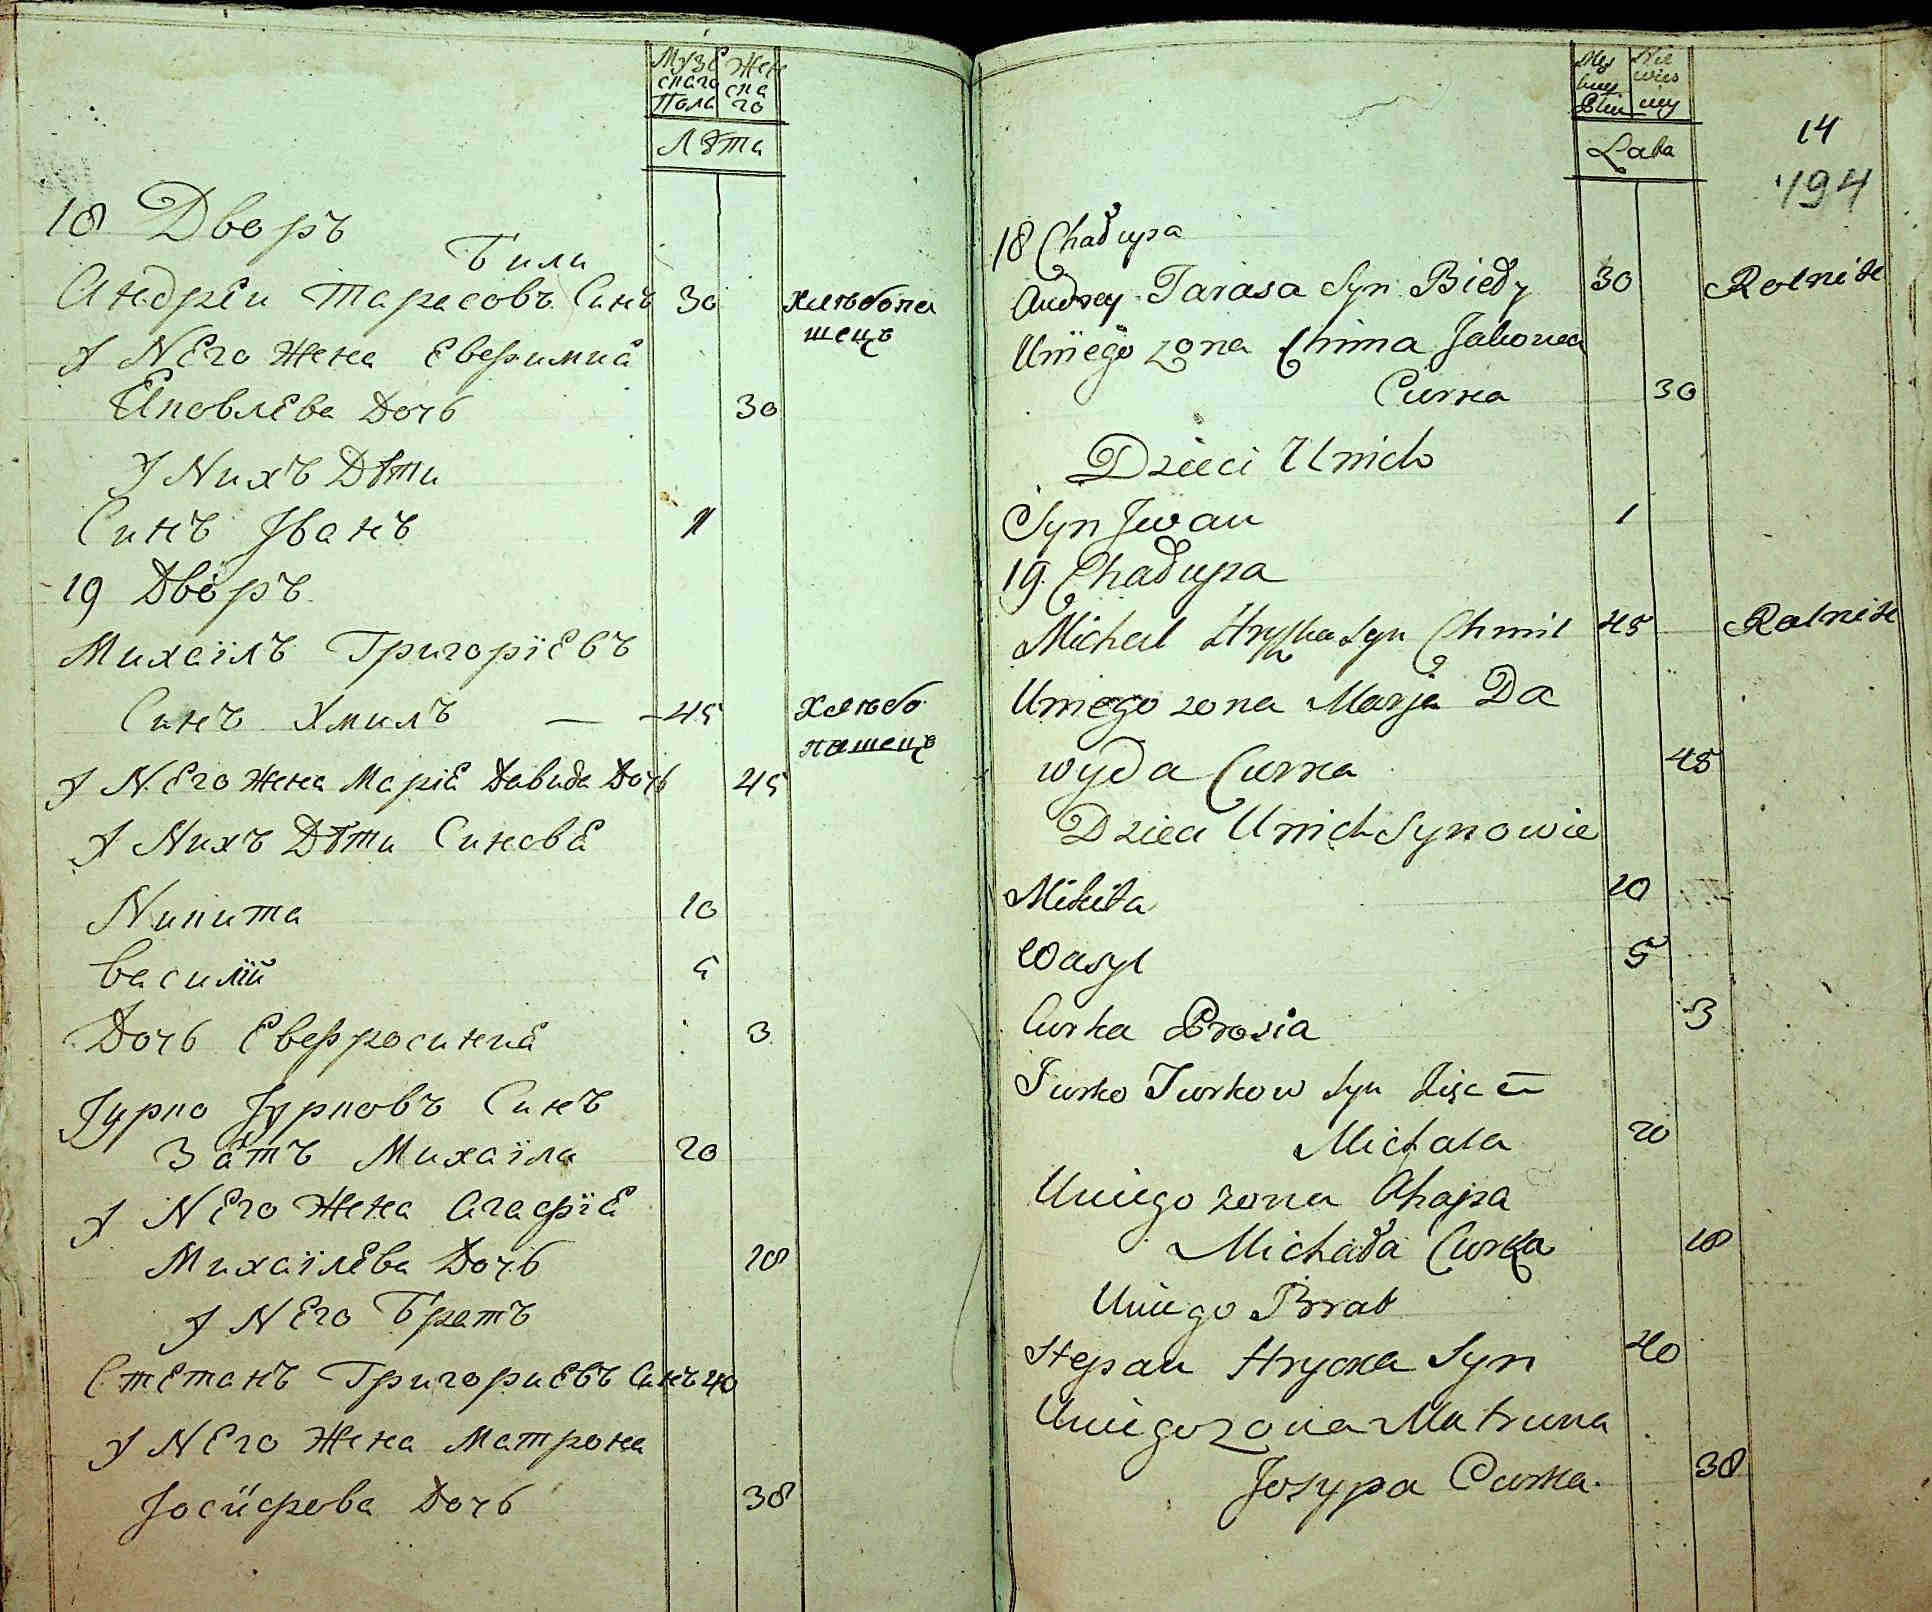 Музе Жен
скаго ска
Пола го
Лѣта
18 Дворъ
Били
Андрей Тарасовъ Синъ 30 хлѣбопа
шець
У Него Жена Евфимиа
Яковлева Дочь 30
У Нихъ Дѣти
Синъ Іванъ 1
19 Дворъ
Михаїлъ Григоріевъ
Синъ Хмилъ — 45 Хлѣбо
пашець
У Него Жена Маріа Давида Дочь 45
У Нихъ Дѣти Синове
Никита 10
Василій 5
Дочь Евфросиниа 3
Јурко Јурковъ Синъ
Зать Михаіла 20
У Него Жена Агафіа
Михаїлева Дочь 18
У Него Братъ
Степанъ Григориевъ Синъ 40
У Него Жена Матрона
Јосифова Дочь 38
Lata
14
194
18 Chałupa
Andrey Tarasa Syn Biedy 30 Rolnik
Uniego zona Chima Jakowa
Curka 30
Dzieci Unich
Syn Jwan 1
19 Chałupa
Michał Hryćka Syn Chmil 45 Rolnik
Uniego zona Marja Da
wyda Curka 45
Dzieci Unich Synowie
Mikita 10
Wasyl 5
Curka Prosia 3
Jurko Jurkow Syn Zięć
Michała 20
Uniego zona Ahapa
Michała Curka 18
Uniego Brat
Stepan Hrycka Syn 40
Uniego zona Matruna
Josypa Curka 38